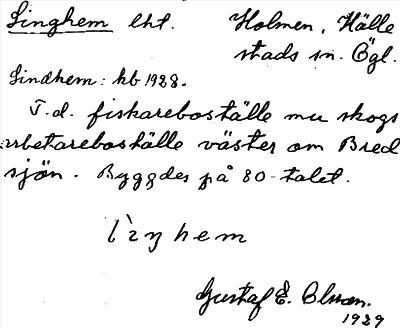 Linghem lht. Holmen, Hälle
stads sn. Ögl.
Lindhem: kb 1928.
T.d. fiskareboställe nu skogs
arbetareboställe väster om Bred
sjön. Byggdes på 80-talet.
lìŋhem
Gustaf E. Olson.
1929